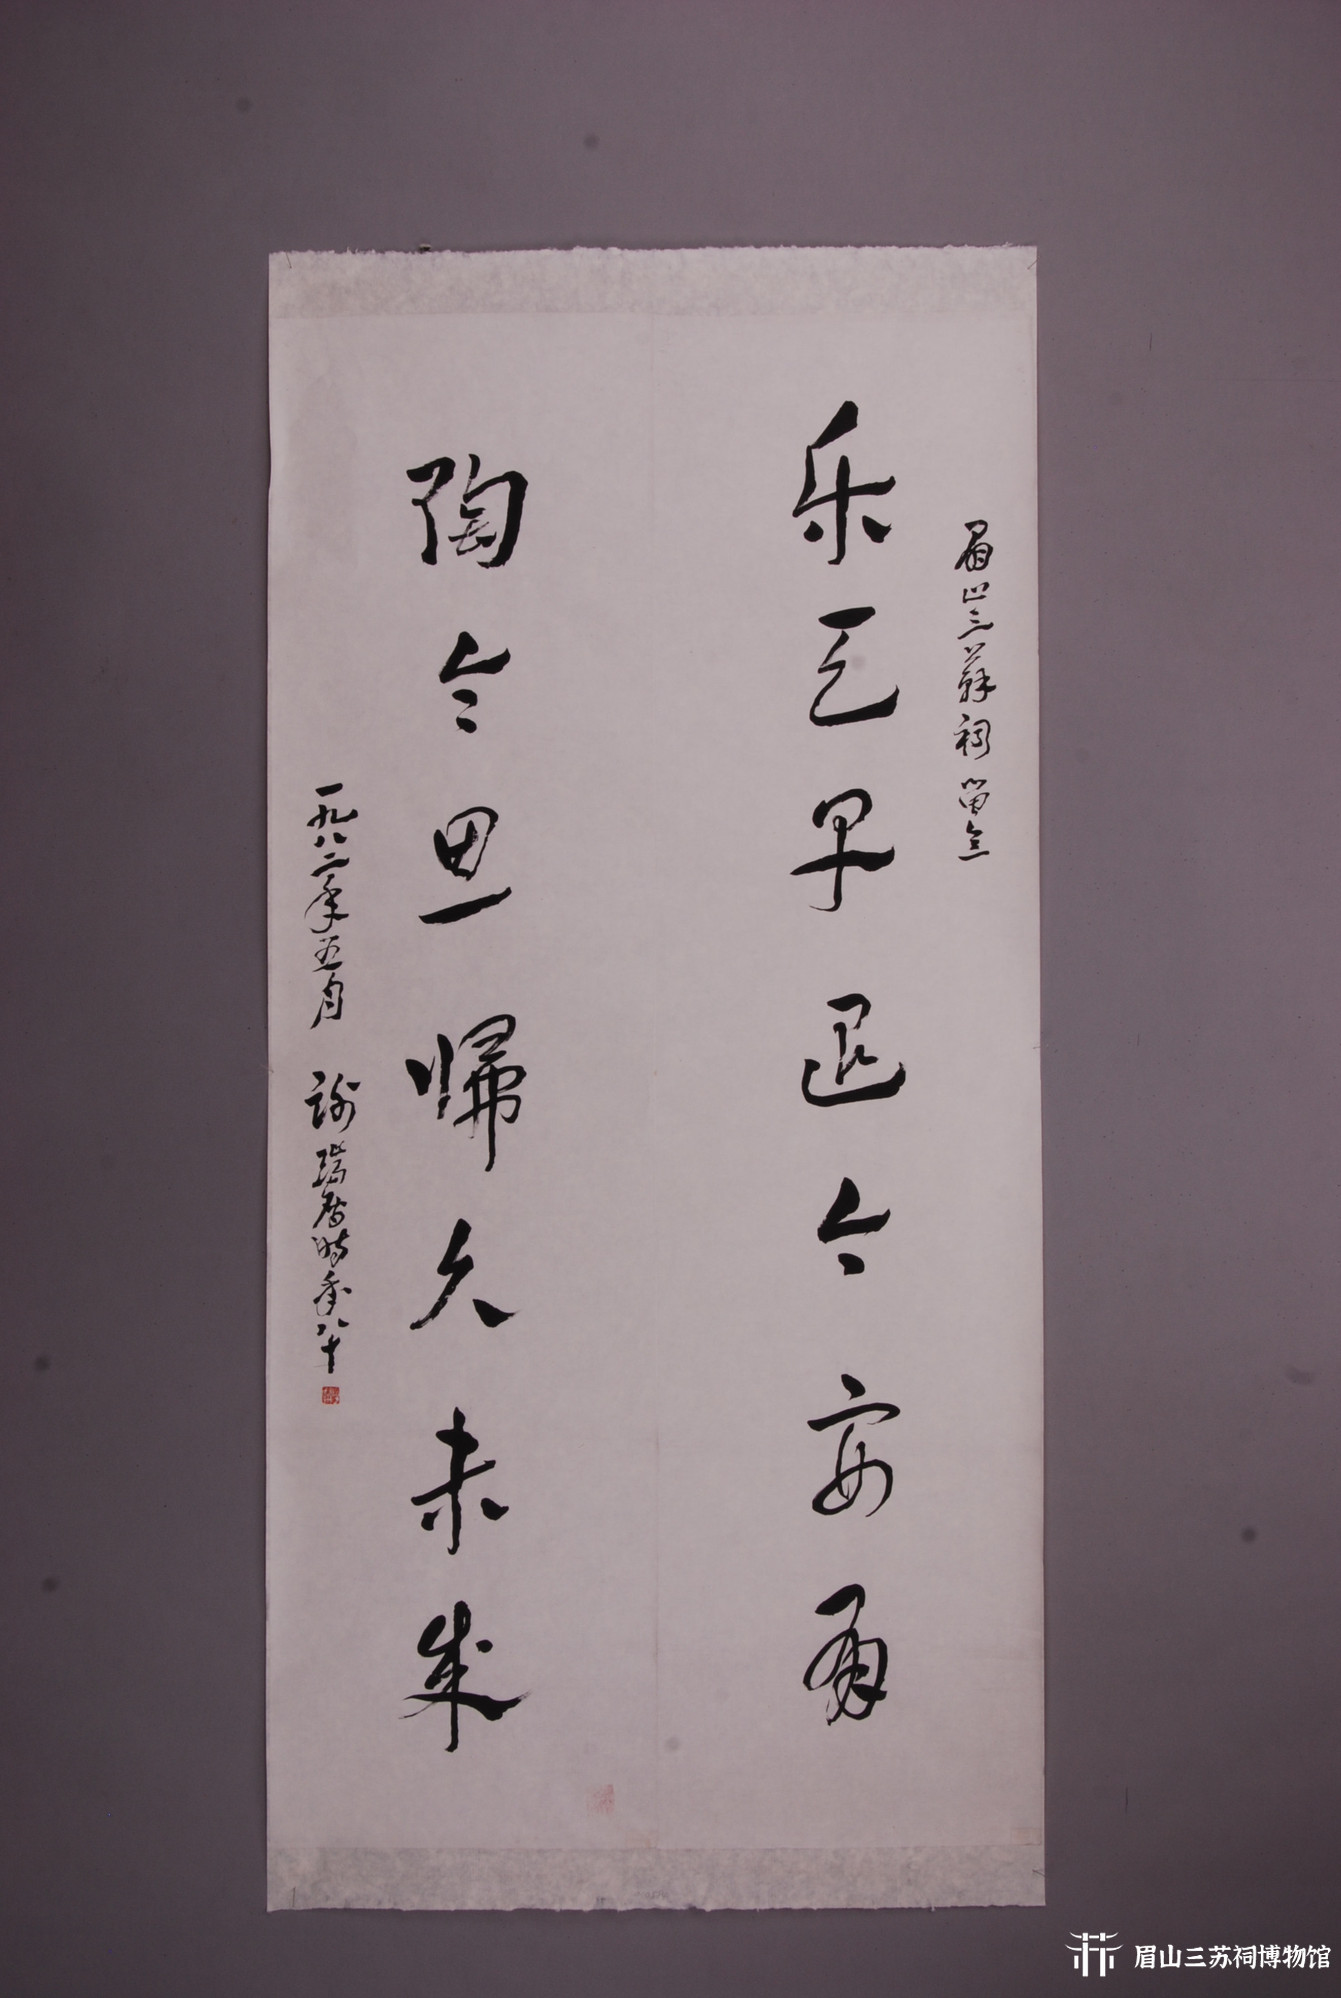 眉山三蘇祠留念
乐天早退今安有
陶令思帰久未成
一九八二年五月 謝瑞階时年八十
眉山三苏祠博物馆